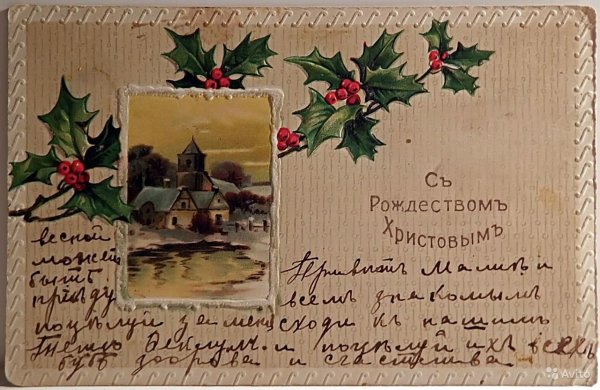 Съ
Рождествомъ
Христовымъ
весной
можетъ
быть
приѣду
Привѣтъ и
всемъ знакомымъ
поцѣлуй за меня сходи къ нашимъ
и поцѣлуй ихъ всехъ
будь здорова и счастлива.
Avito